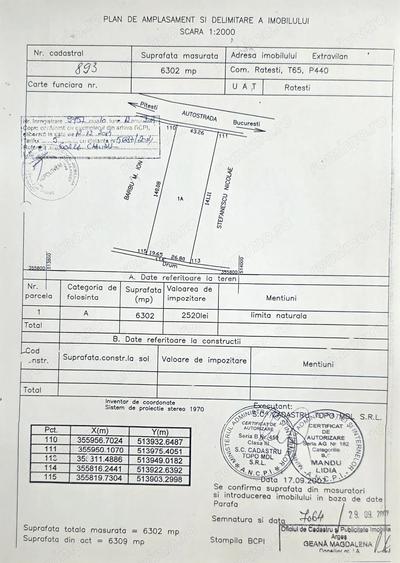 PLAN DE AMPLASAMENT SI DELIMITARE A IMOBILULUI
SCARA 1:2000
Nr. cadastral
Suprafata masurata
Adresa imobilului Extravilan
893
6302 mp
Com. Ratesti, T65, P440
Carte funciara nr.
U A T Ratesti
Pitesti
AUTOSTRADA
Bucuresti
110
43.26
111
BARBU M. ION
140.09
1A
141.11
STEFANESCU NICOLAE
115
19.65
114
26.80
113
Drum
355800
513800
355800
514000
A. Date referitoare la teren
Nr. parcela
Categoria de folosinta
Suprafata (mp)
Valoarea de impozitare
Mentiuni
1
A
6302
2520lei
limita naturala
Total
B. Date referitoare la constructii
Cod constr.
Suprafata.constr.la sol
Valoare de impozitare
Mentiuni
Total
Inventar de coordonate
Sistem de proiectie stereo 1970
Pct. X(m) Y(m)
110 355956.7024 513932.6487
111 355950.1070 513975.4051
311.4886 513949.0182
114 355816.2441 513922.6392
115 355819.7304 513903.2998
Executant:
S.C. CADASTRU TOPO MDL S.R.L.
CERTIFICAT DE AUTORIZARE
S.C. CADASTRU TOPO MDL S.R.L.
A.N.C.P.I.
CERTIFICAT DE AUTORIZARE
MANDU LIDIA
A.N.C.P.I.
Data 17.09.
Se confirma suprafata din masuratori
si introducerea imobilului in baza de date
Parafa
Semnatura si data
7064
Suprafata totala masurata = 6302 mp
Suprafata din act = 6309 mp
Stampila BCPI
Oficiul de Cadastru si Publicitate Imobiliara
Arges
GEANĂ MAGDALENA